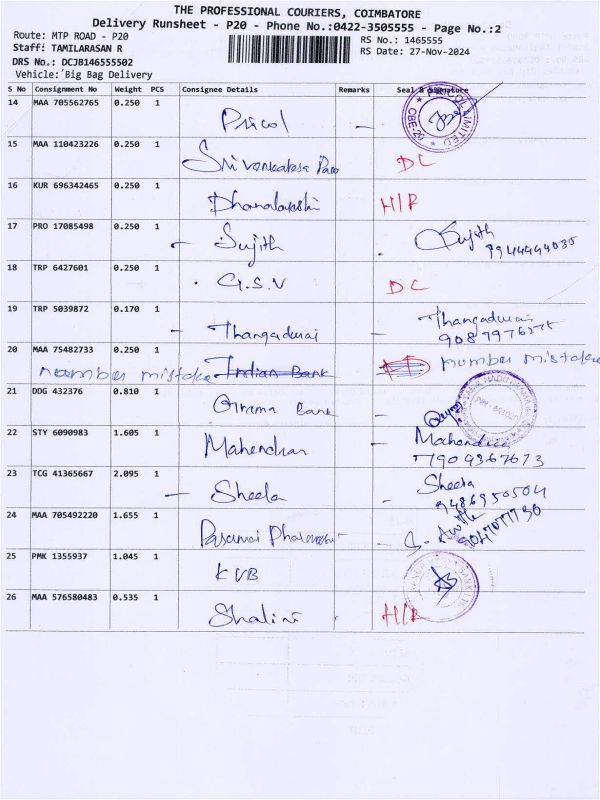 THE PROFESSIONAL COURIERS, COIMBATORE
Delivery Runsheet - P20 - Phone No.:0422-3505555 - Page No.:2
Route: MTP ROAD - P20
RS No.: 1465555
Staff: TAMILARASAN R
RS Date: 27-Nov-2024
DRS No.: DCJB146555502
Vehicle: Big Bag Delivery
S No Consignment No Weight PCS Consignee Details Remarks Seal & Signature
14 MAA 705562765 0.250 1 Pricol - PRICOL LIMITED CBE-20
15 MAA 110423226 0.250 1 Sri Venkatesa DC
16 KUR 696342465 0.250 1 Dhanalakshi H/R
17 PRO 17085498 0.250 1 - Sujith Sujith
9944444035
18 TRP 6427601 0.250 1 G.S.V DC
19 TRP 5039872 0.170 1 - Thangadurai - Thangadurai
20 MAA 75482733 0.250 1 Indian Bank
number mistake number mistake
21 DDG 432376 0.810 1 Grama Bank -
22 STY 6090983 1.605 1 Mahendran -
7909367673
23 TCG 41365667 2.095 1 - Sheela - Sheela
9486950504
24 MAA 705492220 1.655 1 -
25 PMK 1355937 1.045 1 KVB
26 MAA 576580483 0.535 1 Shalini H/R